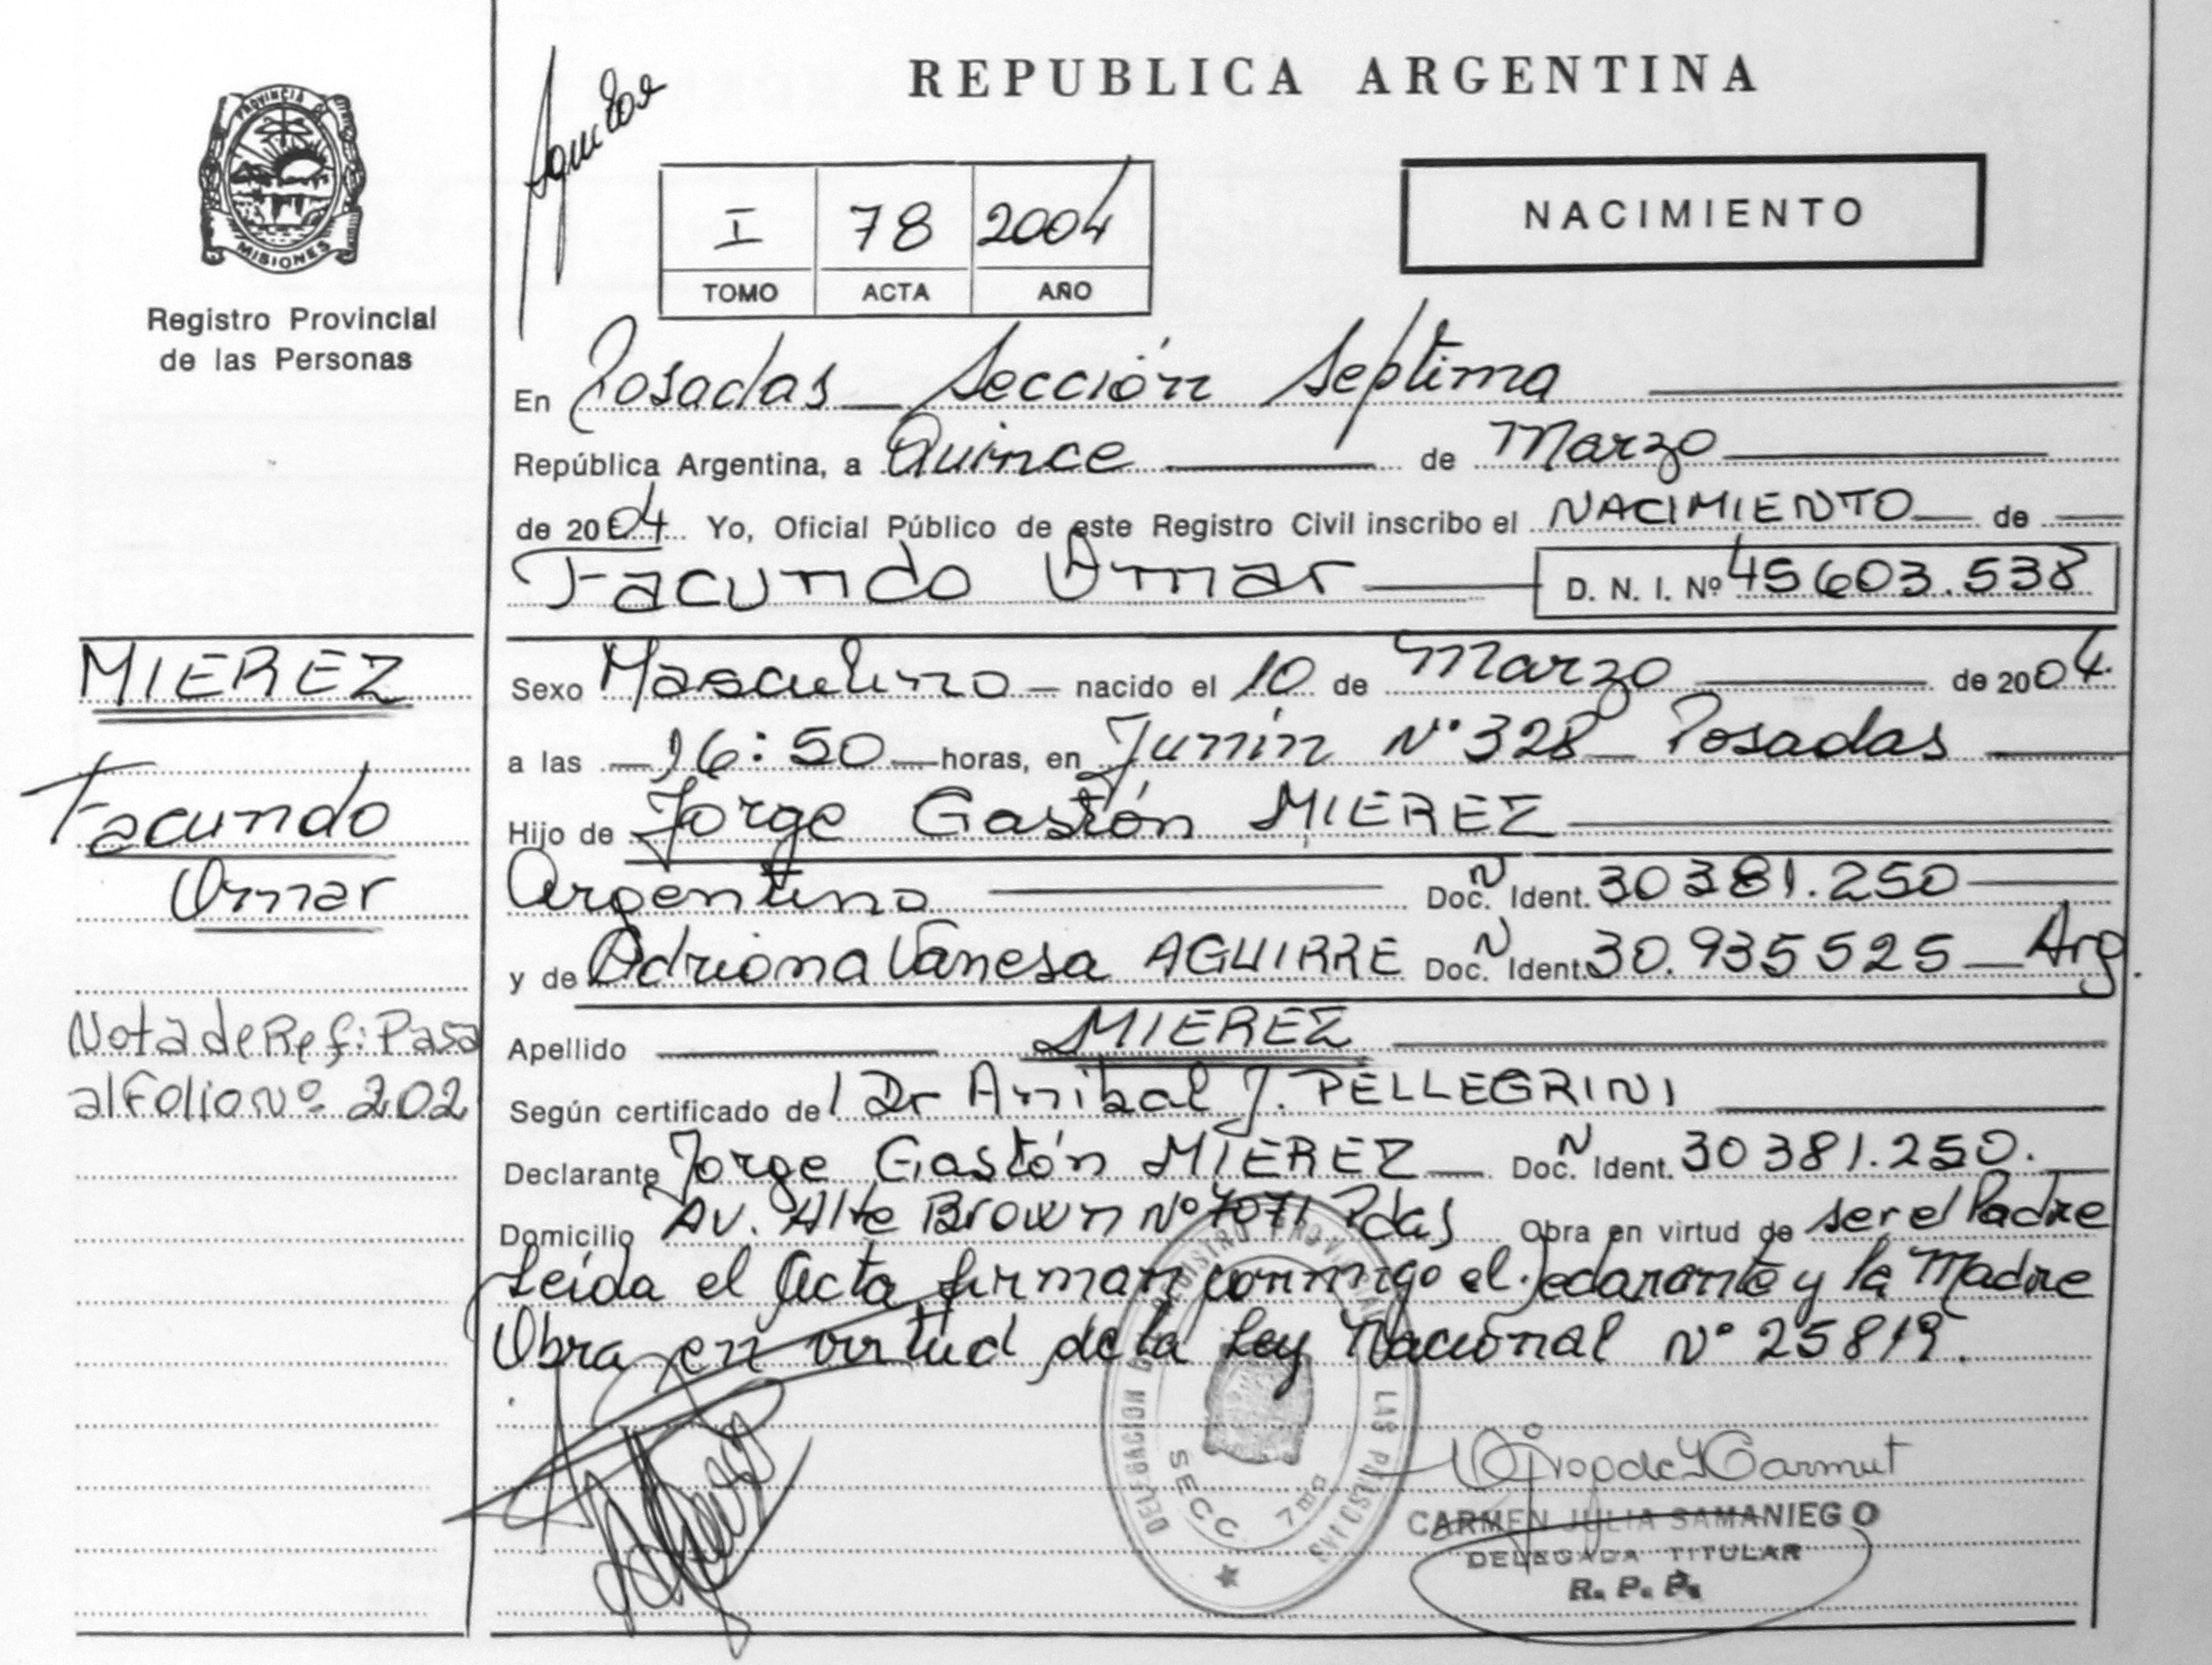 REPUBLICA ARGENTINA
PROVINCIA DE
MISIONES
Registro Provincial
de las Personas
I 78 2004
TOMO ACTA AÑO
NACIMIENTO
En Posadas Sección Septima
República Argentina, a Quince de Marzo
de 2004 Yo, Oficial Público de este Registro Civil inscribo el NACIMIENTO de
Facundo Omar D. N. I. Nº 45603.538
MIEREZ
Facundo
Omar
Nota de Ref: Pasa
al Folio Nº 202
Sexo Masculino nacido el 10 de Marzo de 2004.
a las 16:50 horas, en Junín N° 328 Posadas
Hijo de Jorge Gastón MIEREZ
Argentino Doc. N Ident. 30381.250
y de Adriana Vanesa AGUIRRE Doc. N Ident. 30.935525 Arg.
Apellido MIEREZ
Según certificado del Dr Anibal J. PELLEGRINI
Declarante Jorge Gastón MIEREZ Doc. N Ident. 30381.250.
Domicilio Av. Alte Brown Nº 7071 Pdas Obra en virtud de ser el Padre
Leída el Acta firman conmigo el declarante y la Madre
Obra en virtud de la Ley Nacional N° 25819.
DELEGACION DEL REGISTRO PROVINCIAL DE LAS PERSONAS
SECC 7ma
CARMEN JULIA SAMANIEGO
DELEGADA TITULAR
R. P. P.